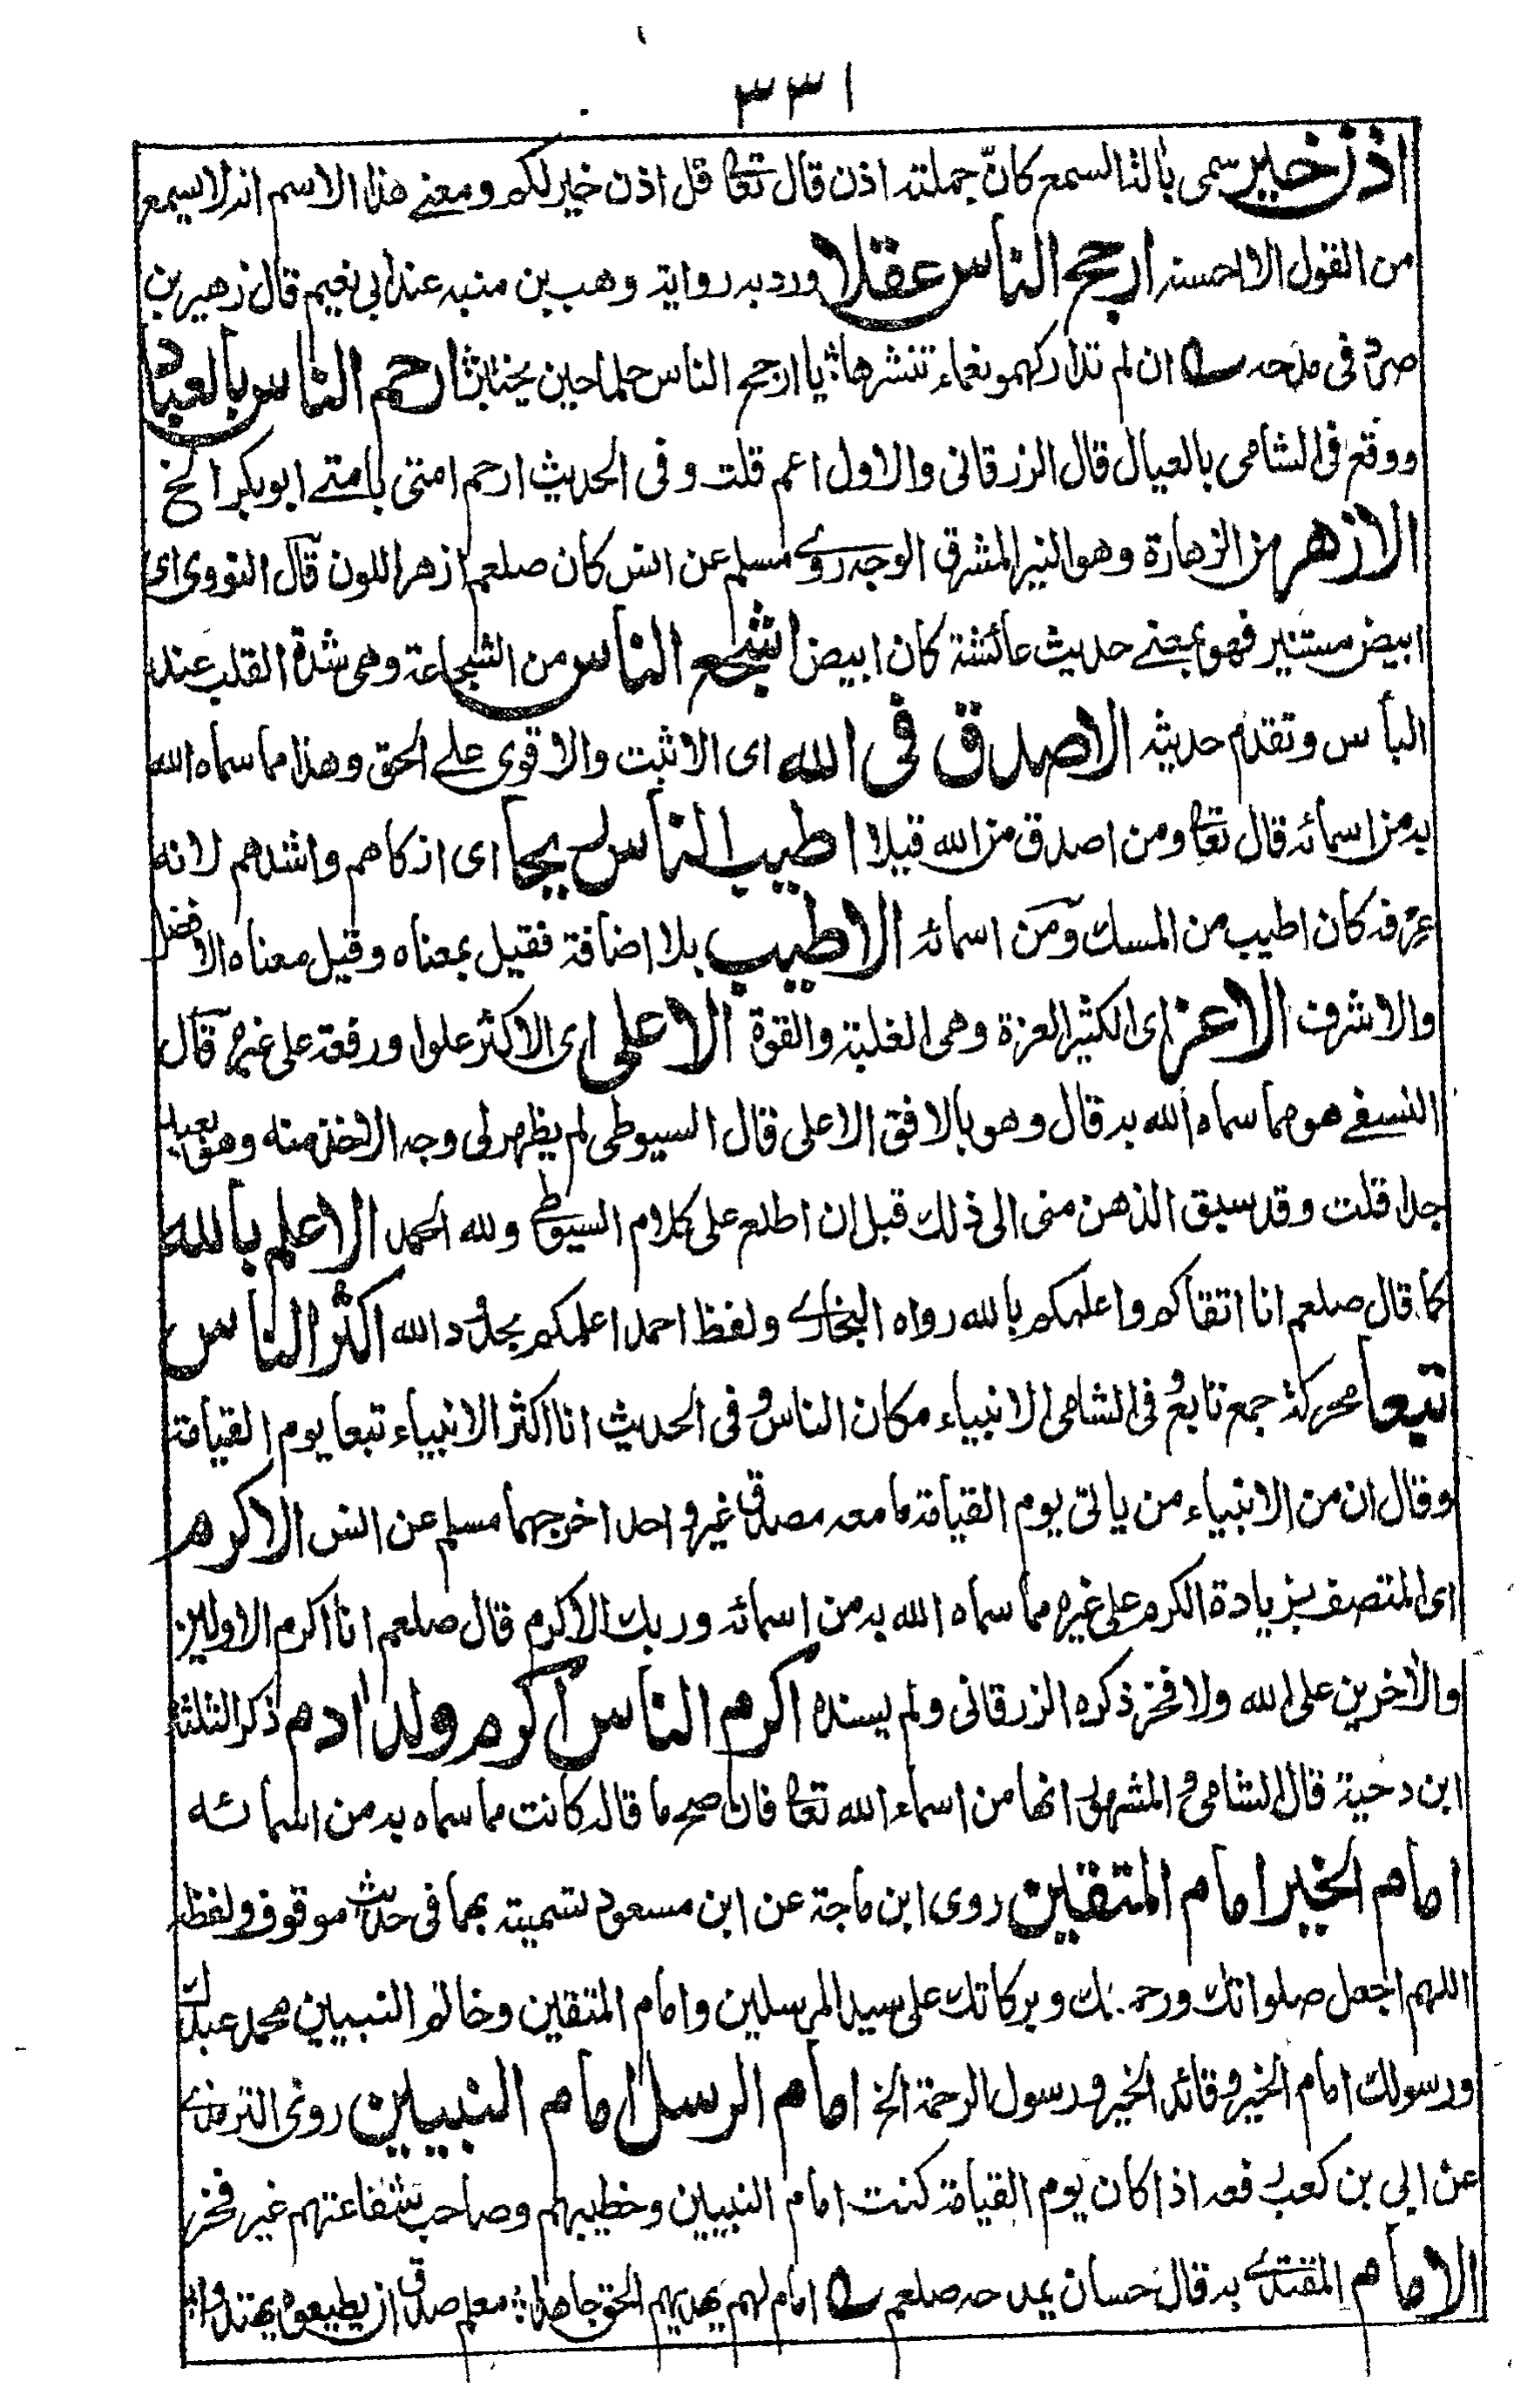 ٣٣١
اذن خير سمى بالثالسمع كانّ جملته اذن قال تعا قل اذن خير لكم ومعنے هذا الاسم انه لا يسمع
من القول الا احسنه ارجح الناس عقلا ورد به رواية وهب بن منبه عند ابي نعيم قال زهير بن
صرد فى مدحه ان لم تداركهمو نعماء تنشرها يا ارجح الناس حلما حين يختبر ارحم الناس بالعباد
ووقع فى الشامى بالعيال قال الزرقانى والاول اعم قلت وفى الحديث ارحم امتى بامتے ابو بكر الخ
الازهر من الزهارة وهو النير المشرق الوجه روے مسلم عن انس كان صلعم ازهر اللون قال النووى اى
ابيض مستنير فهو بمعنے حديث عائشة كان ابيض اشجع الناس من الشجاعة وهى شدة القلب عند
البأس وتقدم حديثه الاصدق فى الله اى الاثبت والاقوى علے الحق وهذا مما سماه الله
به من اسمائه قال تعا ومن اصدق من الله قيلا اطيب الناس ريحا اى ازكاهم واشدهم لانه
عرفه كان اطيب من المسك ومن اسمائه الاطيب بلا اضافة فقيل بمعناه وقيل معناه الافضل
والاشرف الاعز اى الكثير العزة وهى الغلبة والقوة الاعلى اى الاكثر علوا ورفعة على غيره قال
النسفے هو مما سماه الله به قال وهو بالافق الاعلى قال السيوطى لم يظهر لى وجه الاخذ منه وهو بعيد
جدا قلت وقد سبق الذهن منى الى ذلك قبل ان اطلع على كلام السيوطے ولله الحمد الاعلم بالله
كما قال صلعم انا اتقاكم واعلمكم بالله رواه البخارے ولفظ احمد اعلمكم بحدود الله اكثر الناس
تبعا محركة جمع تابع وفى الشامى الانبياء مكان الناس وفى الحديث انا اكثر الانبياء تبعا يوم القيامة
وقال ان من الانبياء من ياتى يوم القيامة ما معه مصدق غير واحد اخرجهما مسلم عن انس الاكرم
اى المتصف بزيادة الكرم على غيره مما سماه الله به من اسمائه وربك الاكرم قال صلعم انا اكرم الاولين
والاخرين على الله ولا فخر ذكره الزرقانى ولم يسنده اكرم الناس اكرم ولد ادم ذكر الثلثة
ابن دحية قال الشامى والمشهور انها من اسماء الله تعا فان صح ما قاله كانت مما سماه به من اسمائه
امام الخير امام المتقين روى ابن ماجة عن ابن مسعود تسميته بهما فى حديث موقوف ولفظه
اللهم اجعل صلواتك ورحمتك وبركاتك على سيد المرسلين وامام المتقين وخاتم النبيين محمد عبدك
ورسولك امام الخير وقائد الخير ورسول الرحمة الخ امام الرسل امام النبيين روى الترمذے
عن ابي بن كعب رفعه اذا كان يوم القيامة كنت امام النبيين وخطيبهم وصاحب شفاعتهم غير فخر
الامام المقتدے به قال حسان يمدحه صلعم امام لهم يهديهم الحق جاهدا معلم صدق ان يطيعوه يهتدوا